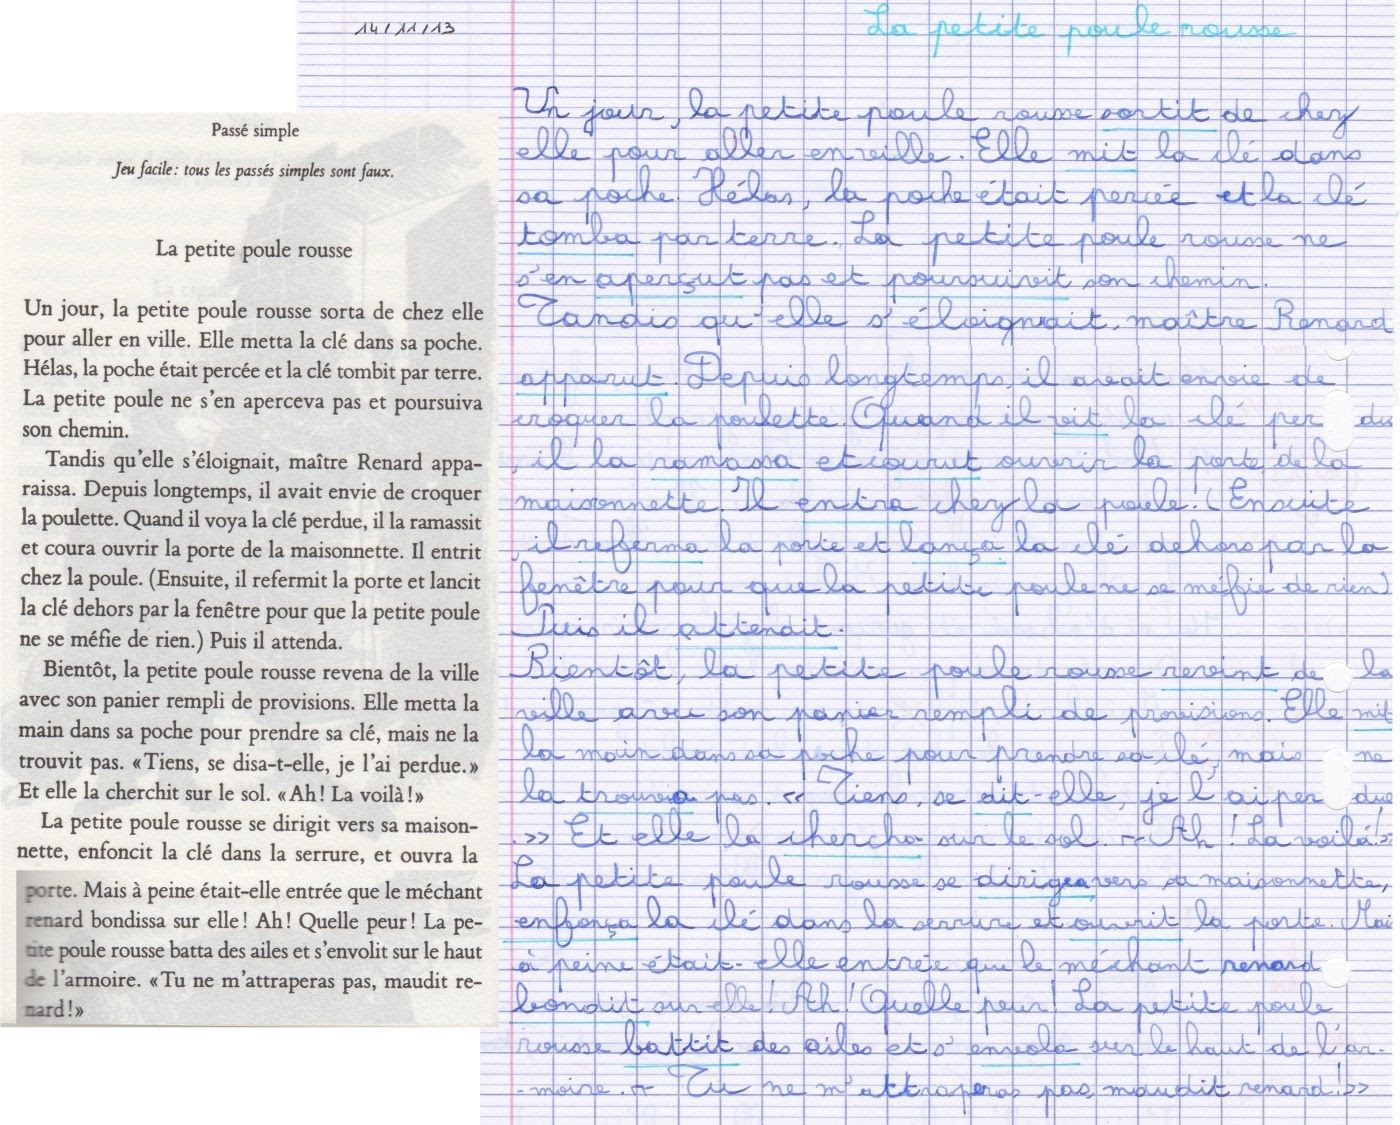 14/11/13
La petite poule rousse
Passé simple
Jeu facile : tous les passés simples sont faux.
La petite poule rousse
Un jour, la petite poule rousse sorta de chez elle
pour aller en ville. Elle metta la clé dans sa poche.
Hélas, la poche était percée et la clé tombit par terre.
La petite poule ne s'en aperceva pas et poursuiva
son chemin.
Tandis qu'elle s'éloignait, maître Renard appa-
raissa. Depuis longtemps, il avait envie de croquer
la poulette. Quand il voya la clé perdue, il la ramassit
et coura ouvrir la porte de la maisonnette. Il entrit
chez la poule. (Ensuite, il refermit la porte et lancit
la clé dehors par la fenêtre pour que la petite poule
ne se méfie de rien.) Puis il attenda.
Bientôt, la petite poule rousse revena de la ville
avec son panier rempli de provisions. Elle metta la
main dans sa poche pour prendre sa clé, mais ne la
trouvit pas. «Tiens, se disa-t-elle, je l'ai perdue.»
Et elle la cherchit sur le sol. «Ah! La voilà!»
La petite poule rousse se dirigit vers sa maison-
nette, enfoncit la clé dans la serrure, et ouvra la
porte. Mais à peine était-elle entrée que le méchant
renard bondissa sur elle! Ah! Quelle peur! La pe-
tite poule rousse batta des ailes et s'envolit sur le haut
de l'armoire. «Tu ne m'attraperas pas, maudit re-
nard!»
Un jour, la petite poule rousse sortit de chez
elle pour aller en ville. Elle mit la clé dans
sa poche. Hélas, la poche était percée et la clé
tomba par terre. La petite poule rousse ne
s'en aperçut pas et poursuivit son chemin.
Tandis qu'elle s'éloignait, maître Renard
apparut. Depuis longtemps, il avait envie de
croquer la poulette. Quand il vit la clé per due
, il la ramassa et courut ouvrir la porte de la
maisonnette. Il entra chez la poule. (Ensuite
, il refferma la porte et lança la clé dehors par la
fenêtre pour que la petite poule ne se méfie de rien)
Puis il attendit.
Bientôt, la petite poule rousse revint de la
ville avec son panier rempli de provisions. Elle mit
la main dans sa poche pour prendre sa clé, mais ne
la trouva pas. « Tiens, se dit-elle, je l'ai per due
.» Et elle la chercha sur le sol. « Ah ! La voilà!»
La petite poule rousse se dirigea vers sa maisonnette,
enfonça la clé dans la serrure et ouvrit la porte. Mai
à peine était-elle entrée que le méchant renard
bondit sur elle! Ah! Quelle peur! La petite poule
rousse battit des ailes et s'envola sur le haut de l'ar-
-moire. « Tu ne m'attraperas pas, maudit renard!»